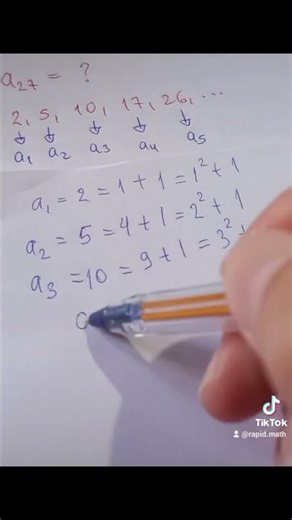 a₂₇ = ?
2, 5, 10, 17, 26, ...
↓ ↓ ↓ ↓ ↓
a₁ a₂ a₃ a₄ a₅
a₁ = 2 = 1 + 1 = 1² + 1
a₂ = 5 = 4 + 1 = 2² + 1
a₃ = 10 = 9 + 1 = 3² +
TikTok
@rapid.math